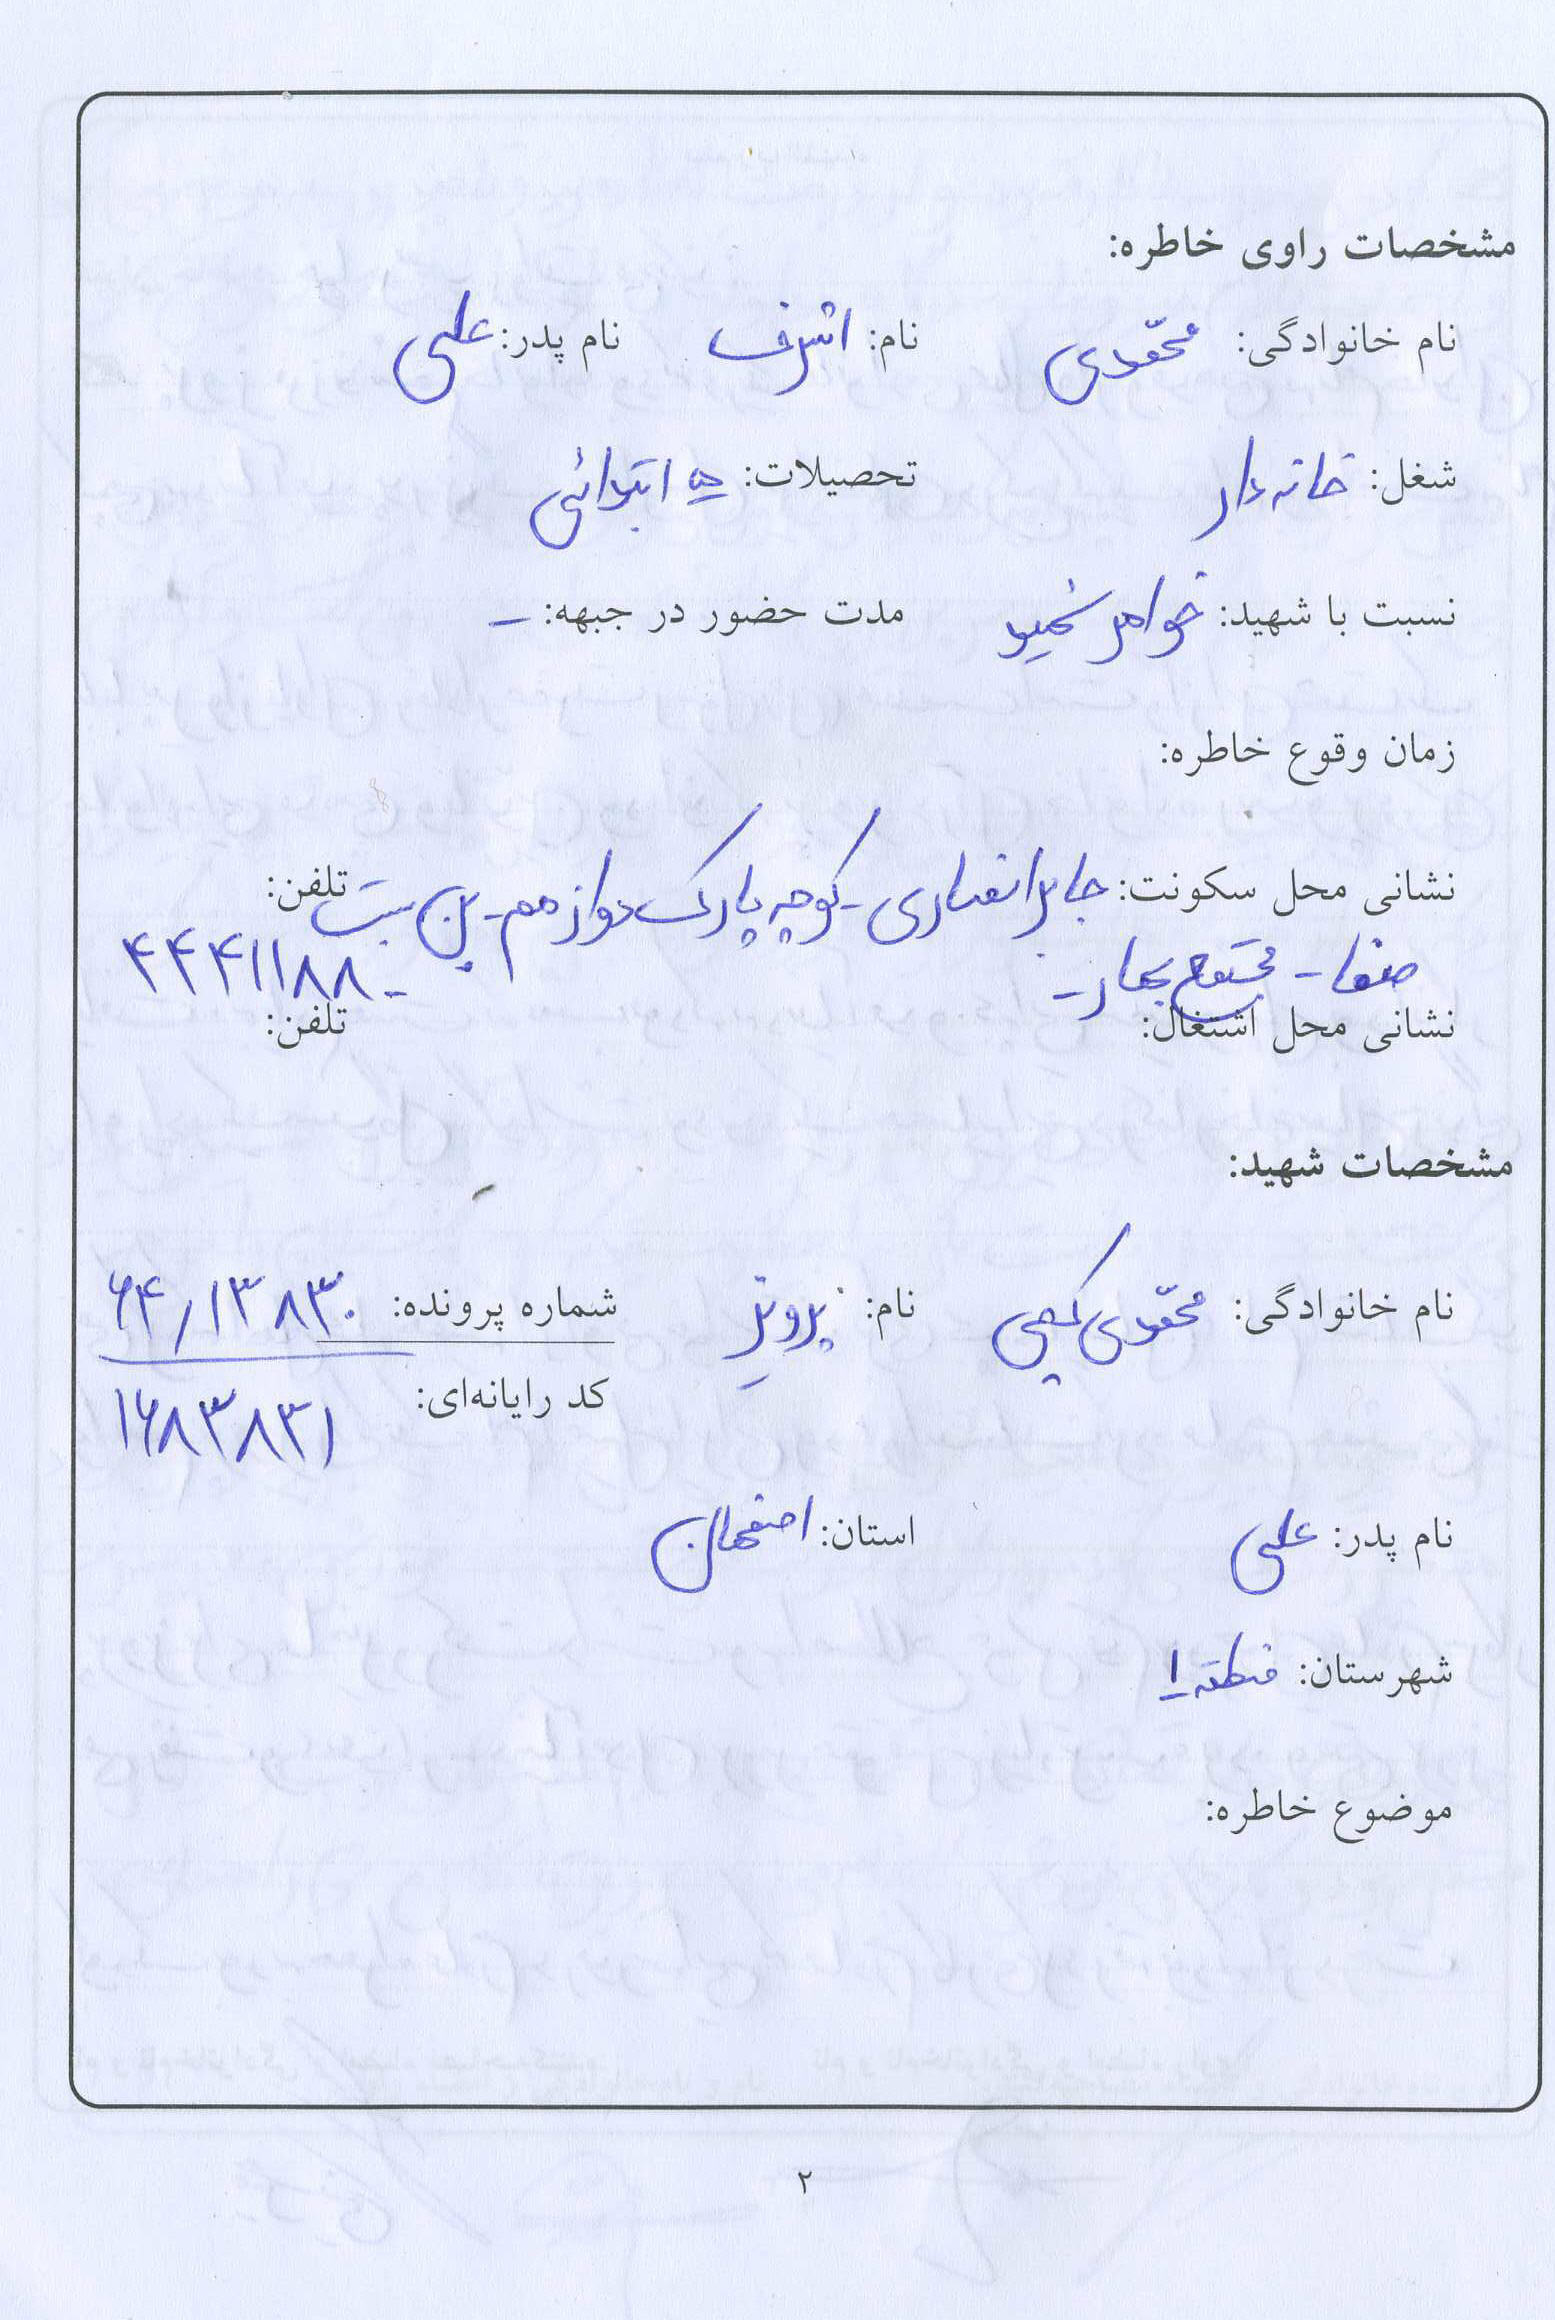 مشخصات راوی خاطره:
نام خانوادگی: محمّدی نام: اشرف نام پدر: علی
شغل: خانه دار تحصیلات: ۵ ابتدائی
نسبت با شهید: خواهر شهید مدت حضور در جبهه: –
زمان وقوع خاطره:
نشانی محل سکونت: جابرانصاری - کوچه پارک دوازدهم - بن بست تلفن:
صفا - مجتمع بهار - ۴۴۴۱۱۸۸ -
نشانی محل اشتغال: تلفن:
مشخصات شهید:
نام خانوادگی: محمّدی کپی نام: پرویز شماره پرونده: ۶۴/۱۳۸۳۰
کد رایانه‌ای: ۱۶۸۳۸۳۱
نام پدر: علی استان: اصفهان
شهرستان: منطقه ۱
موضوع خاطره:
۲